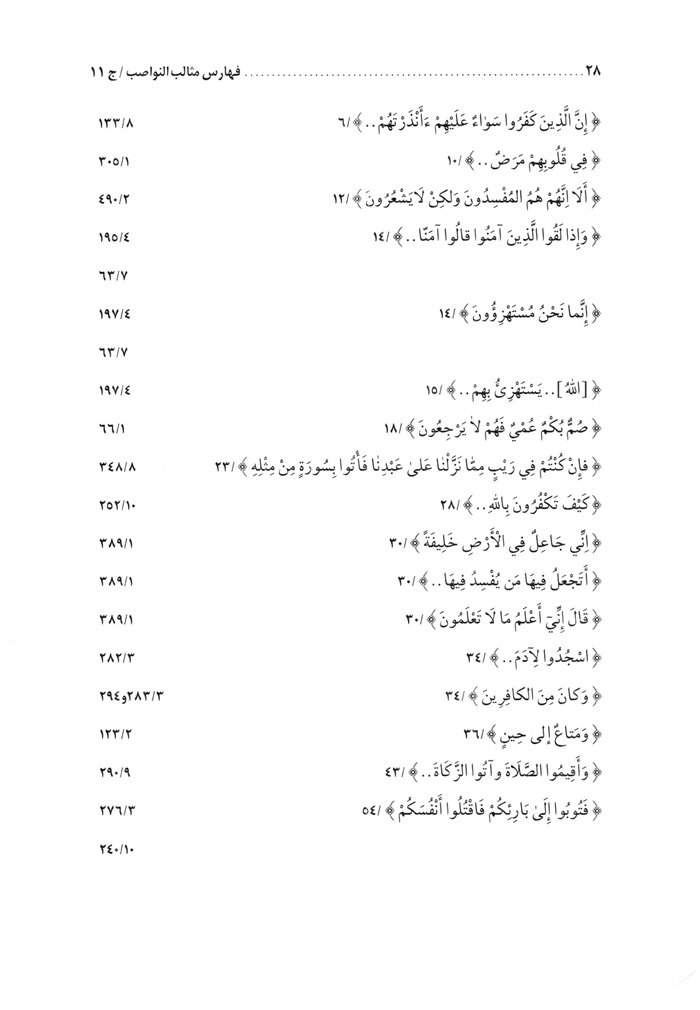 ٢٨ ............................................................ فهارس مثالب النواصب / ج ١١
﴿ إِنَّ الَّذِينَ كَفَرُوا سَوٰاءٌ عَلَيْهِمْ ءَأَنْذَرْتَهُمْ..﴾ /٦ ١٣٣/٨
﴿ فِي قُلُوبِهِمْ مَرَضٌ ..﴾ /١٠ ٣٠٥/١
﴿ أَلَا اِنَّهُمْ هُمُ المُفْسِدُونَ وَلكِنْ لَايَشْعُرُونَ ﴾ /١٢ ٤٩٠/٢
﴿ وَإِذا لَقُوا الَّذِينَ آمَنُوا قالُوا آمَنّا ..﴾ /١٤ ١٩٥/٤
٦٣/٧
﴿ إِنَّما نَحْنُ مُسْتَهْزِؤُونَ ﴾ /١٤ ١٩٧/٤
٦٣/٧
﴿ [اللهُ] .. يَسْتَهْزِئُ بِهِمْ ..﴾ /١٥ ١٩٧/٤
﴿ صُمٌّ بُكْمٌ عُمْيٌ فَهُمْ لاٰ يَرْجِعُونَ ﴾ /١٨ ٦٦/١
﴿ فإِنْ كُنْتُمْ فِي رَيْبٍ مِمّٰا نَزَّلْنٰا عَلىٰ عَبْدِنٰا فَأْتُوا بِسُورَةٍ مِنْ مِثْلِهِ ﴾ /٢٣ ٣٤٨/٨
﴿ كَيْفَ تَكْفُرُونَ بِاللهِ ..﴾ /٢٨ ٢٥٢/١٠
﴿ إِنِّي جَاعِلٌ فِي الْأَرْضِ خَلِيفَةً ﴾ /٣٠ ٣٨٩/١
﴿ أَتَجْعَلُ فِيهَا مَن يُفْسِدُ فِيهَا ..﴾ /٣٠ ٣٨٩/١
﴿ قَالَ إِنِّيٓ أَعْلَمُ مَا لَا تَعْلَمُونَ ﴾ /٣٠ ٣٨٩/١
﴿ اسْجُدُوا لِآدَمَ ..﴾ /٣٤ ٢٨٢/٣
﴿ وَكانَ مِنَ الكافِرِينَ ﴾ /٣٤ ٢٨٣/٣و٢٩٤
﴿ وَمَتاعٌ إلى حِينٍ ﴾ /٣٦ ١٢٣/٢
﴿ وَأَقِيمُوا الصَّلَاةَ وآتُوا الزَّكَاةَ ..﴾ /٤٣ ٢٩٠/٩
﴿ فَتُوبُوا إِلَىٰ بَارِئِكُمْ فَاقْتُلُوا أَنْفُسَكُمْ ﴾ /٥٤ ٢٧٦/٣
٢٤٠/١٠